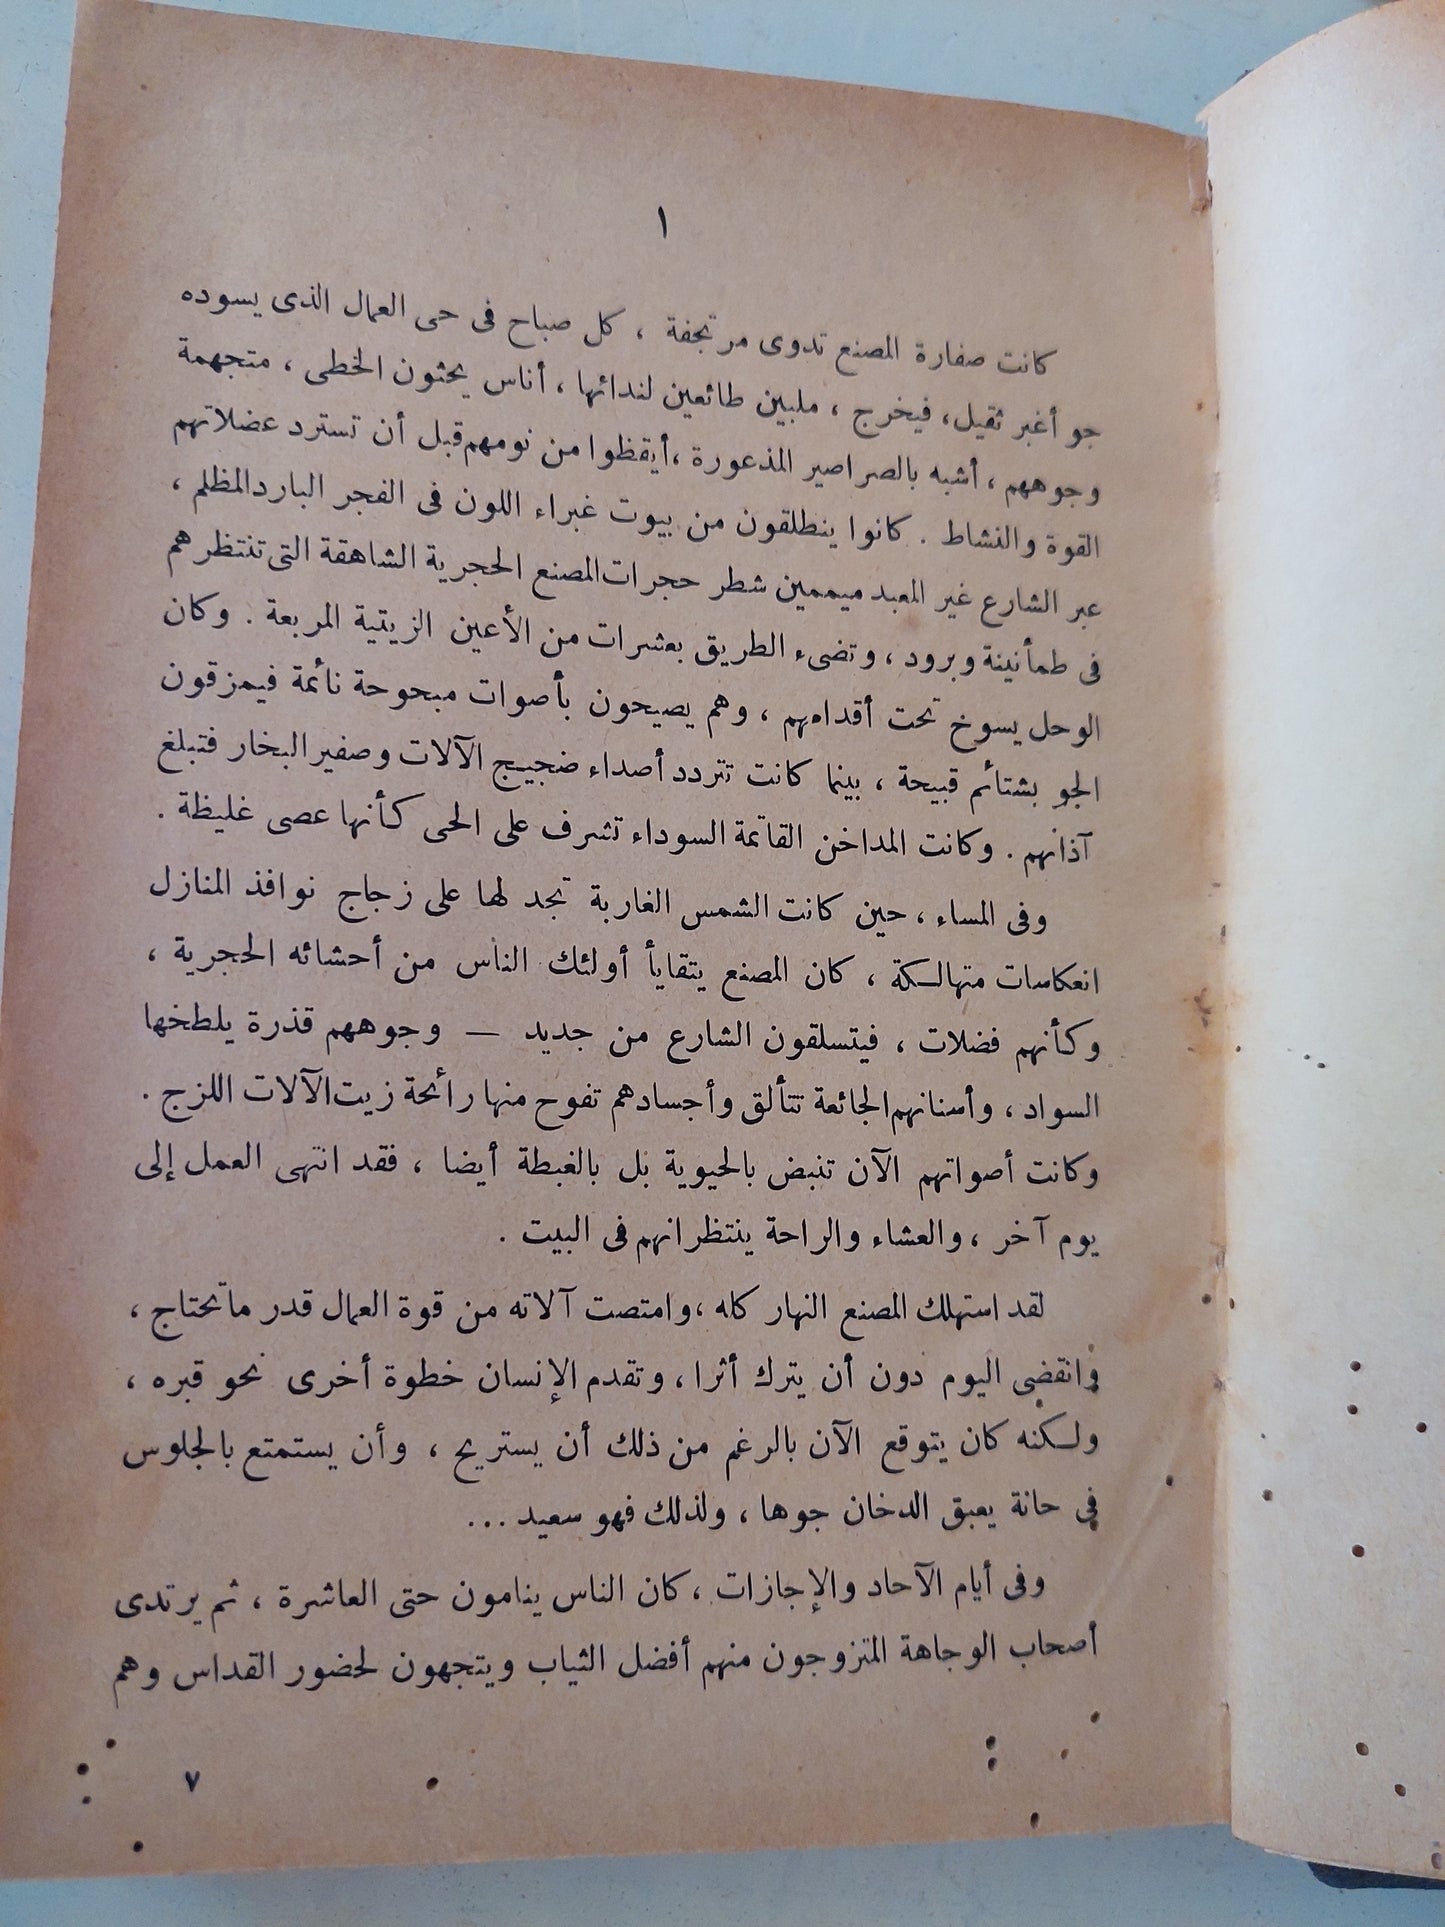 ١
كانت صفارة المصنع تدوى مرتجفة ، كل صباح فى حى العمال الذى يسوده
جو أغبر ثقيل، فيخرج ، ملبين طائعين لندائها ، أناس يحثون الخطى ، متجهمة
وجوههم ، أشبه بالصراصير المذعورة ،أيقظوا من نومهم قبل أن تسترد عضلاتهم
القوة والنشاط . كانوا ينطلقون من بيوت غبراء اللون فى الفجر البارد المظلم ،
عبر الشارع غير المعبد ميممين شطر حجرات المصنع الحجرية الشاهقة التى تنتظرهم
فى طمأنينة وبرود ، وتضىء الطريق بعشرات من الأعين الزيتية المربعة . وكان
الوحل يسوخ تحت أقدامهم ، وهم يصيحون بأصوات مبحوحة نائمة فيمزقون
الجو بشتائم قبيحة ، بينما كانت تتردد أصداء ضجيج الآلات وصفير البخار فتبلغ
آذانهم . وكانت المداخن القاتمة السوداء تشرف على الحى كأنها عصى غليظة .
وفى المساء ، حين كانت الشمس الغاربة تجد لها على زجاج نوافذ المنازل
انعكاسات متهالكة ، كان المصنع يتقايأ أولئك الناس من أحشائه الحجرية ،
وكأنهم فضلات ، فيتسلقون الشارع من جديد — وجوههم قذرة يلطخها
السواد ، وأسنانهم الجائعة تتألق وأجسادهم تفوح منها رائحة زيت الآلات اللزج .
وكانت أصواتهم الآن تنبض بالحيوية بل بالغبطة أيضا ، فقد انتهى العمل إلى
يوم آخر ، والعشاء والراحة ينتظرانهم فى البيت .
لقد استهلك المصنع النهار كله ،وامتصت آلاته من قوة العمال قدر ماتحتاج ،
وانقضى اليوم دون أن يترك أثرا ، وتقدم الإنسان خطوة أخرى نحو قبره ،
ولكنه كان يتوقع الآن بالرغم من ذلك أن يستريح ، وأن يستمتع بالجلوس
فى حانة يعبق الدخان جوها ، ولذلك فهو سعيد ...
وفى أيام الآحاد والإجازات ،كان الناس ينامون حتى العاشرة ، ثم يرتدى
أصحاب الوجاهة المتزوجون منهم أفضل الثياب ويتجهون لحضور القداس وهم
٧